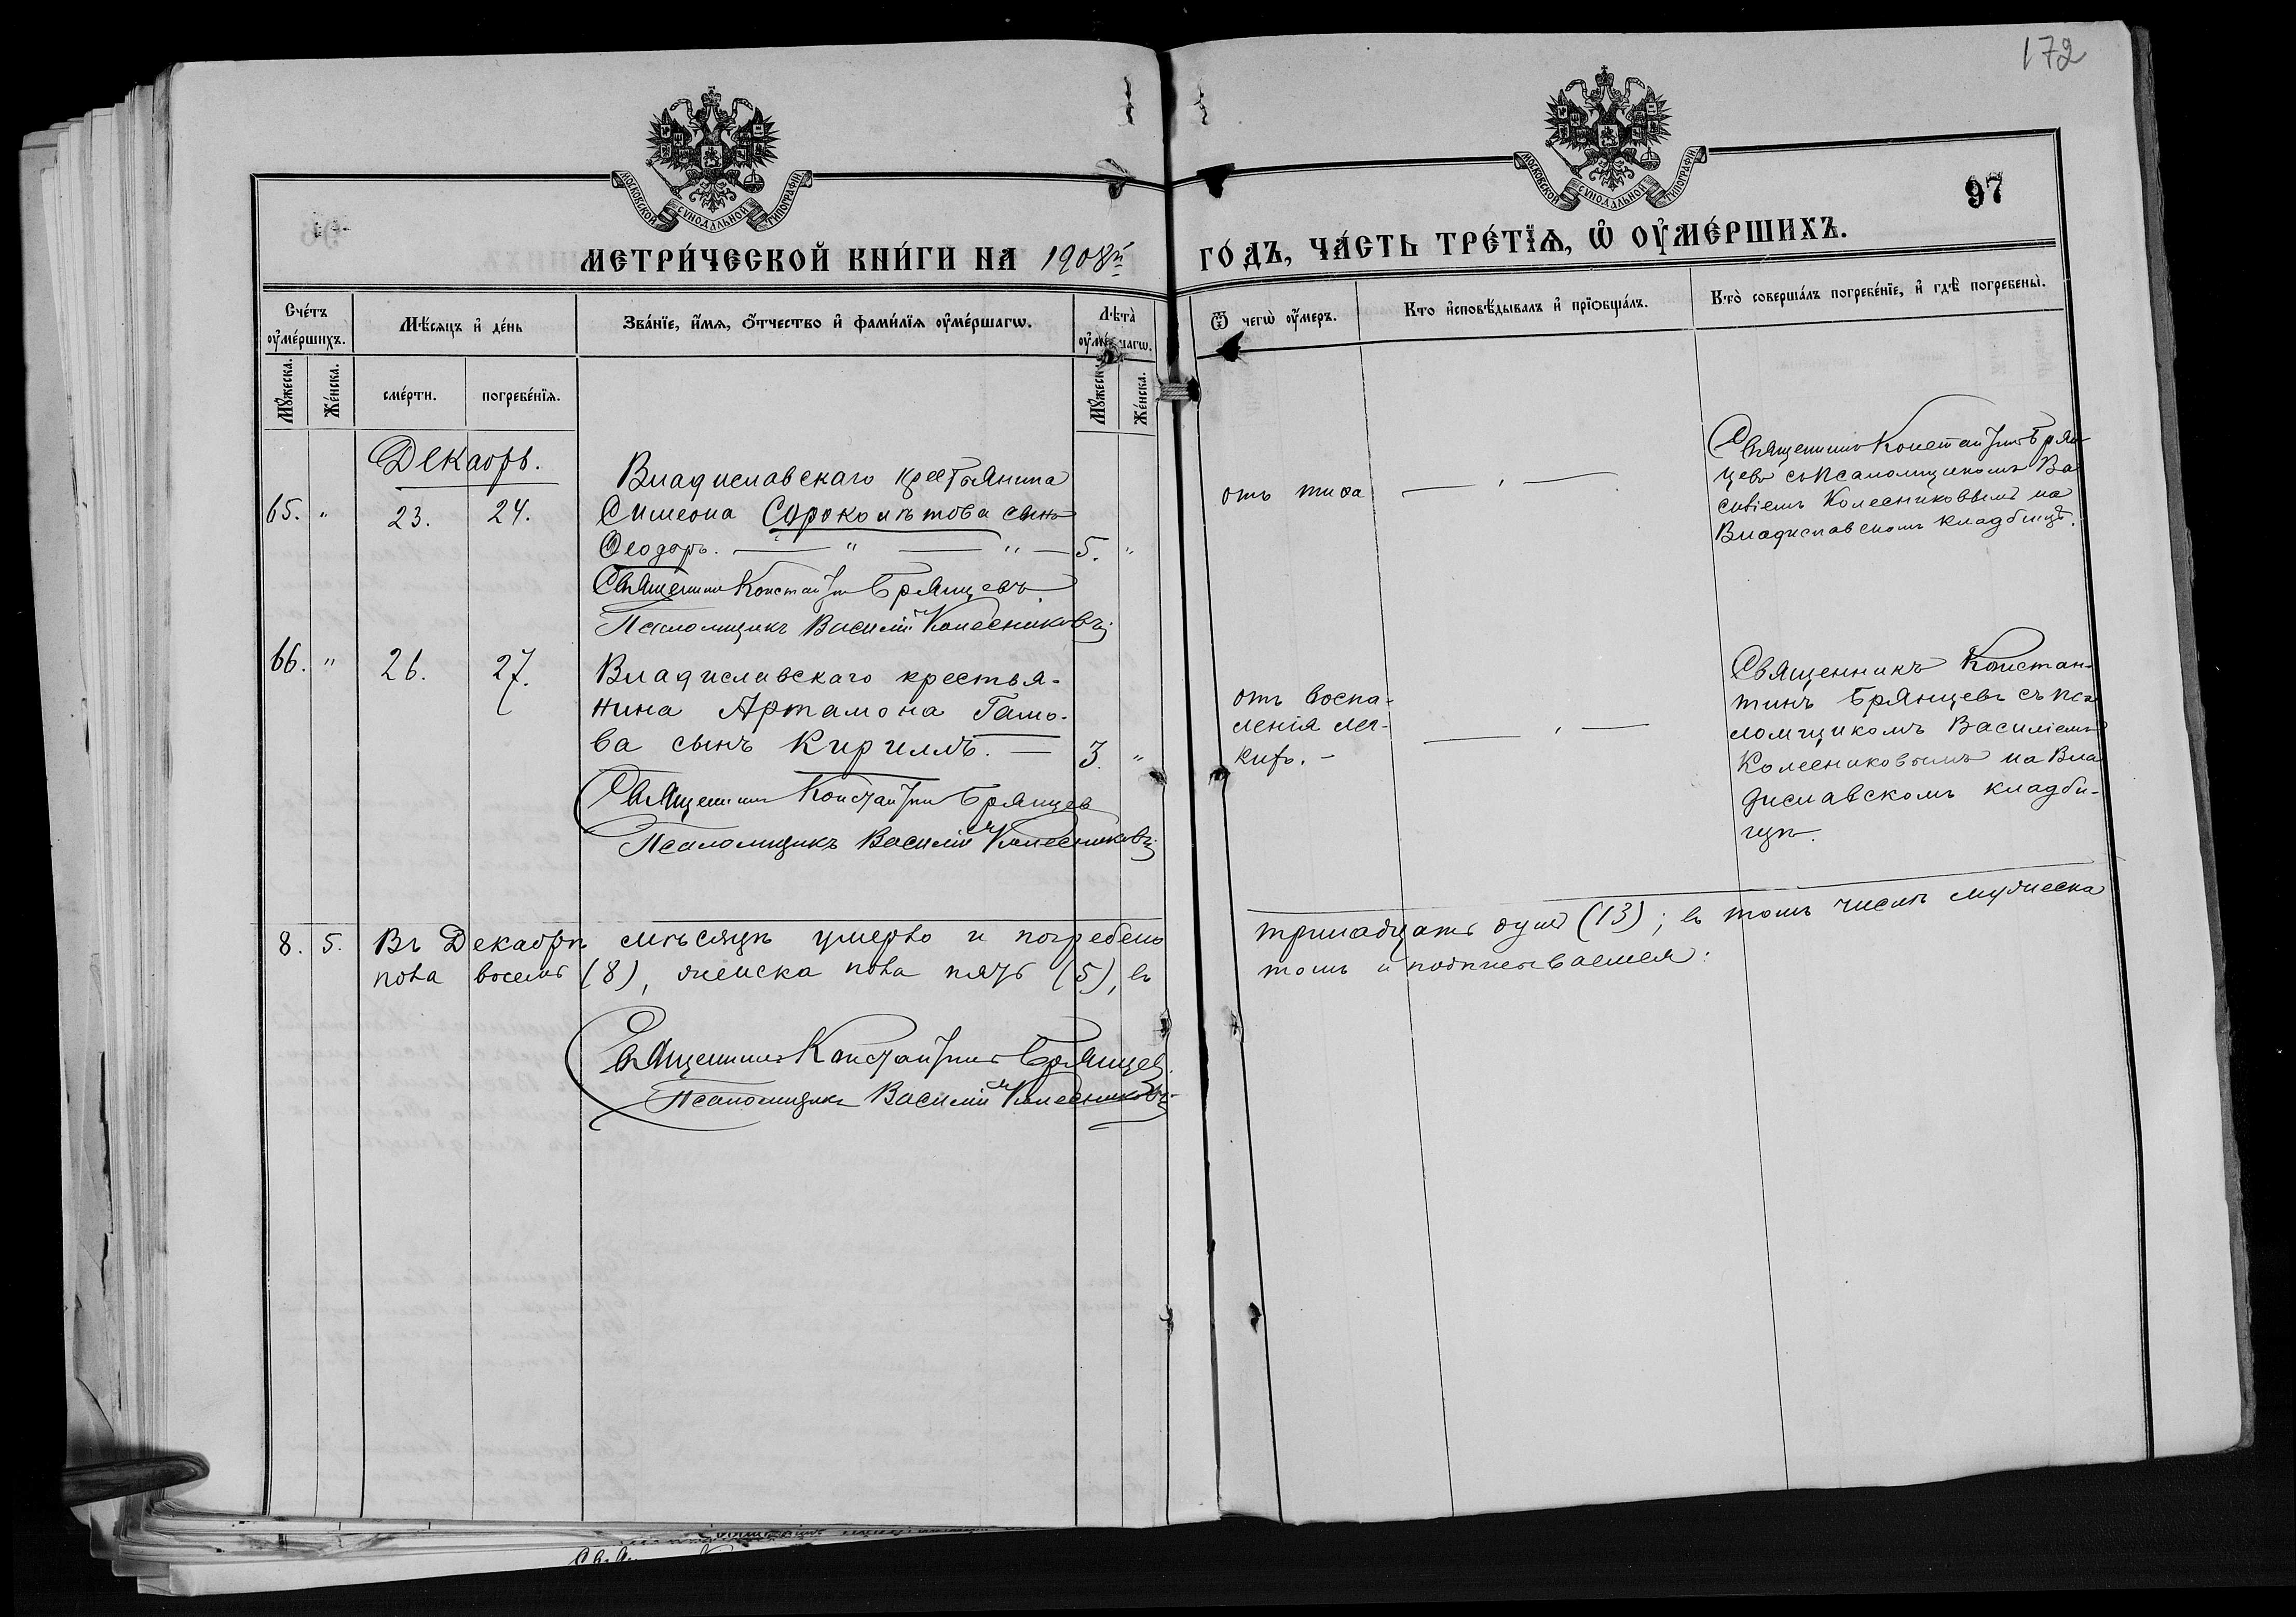 172
МОСКОВСКОЙ СѴНОДАЛЬНОЙ ТИПОГРАФІИ
МОСКОВСКОЙ СѴНОДАЛЬНОЙ ТИПОГРАФІИ
97
МЕТРИ́ЧЕСКОЙ КНИ́ГИ НА 1908й
ГО́ДЪ, ЧА́СТЬ ТРЕ́ТЇѦ, Ѽ ОУМЕ́РШИХЪ.
Сче́тъ оумéршихъ.
Мѣсяцъ и де́нь
Зва́нїе, и́мѧ, о́тчество и фами́лїѧ оуме́ршагѡ.
Лѣта̀ оумершагѡ.
Мꙋжеска.
Же́нска.
сме́рти.
погребе́нїѧ.
Мꙋжеска.
Же́нска.
Ѿ чегѡ̀ оу́меръ.
Кто исповѣ́дывалъ и прїобща́лъ.
Кто̀ соверша́лъ погребе́нїе, и гдѣ̀ погребены̀.
Декабрь.
65. " 23. 24.
Владиславскаго крестьянина
Симеона Сороколѣтова сынъ
Ѳеодоръ. — " — " — 5. "
Священникъ Константинъ Брянцевъ
Псаломщикъ Василій Колесниковъ
отъ тифа
Священникъ Константинъ Брян
цевъ съ псаломщикомъ Ва
силіемъ Колесниковымъ на
Владиславскомъ кладбищѣ.
66. " 26. 27.
Владиславскаго крестья-
нина Артамона Гамо-
ва сынъ Кириллъ. — 3. "
Священникъ Константинъ Брянцев
Псаломщикъ Василій Колесниковъ
отъ воспа-
ленія лег-
кихъ. -
Священникъ Констан-
тинъ Брянцевъ съ пса
ломщикомъ Василіемъ
Колесниковымъ на Вла
диславскомъ кладби-
щѣ.
8. 5. Въ Декабрѣ мѣсяцѣ умерло и погребено
тринадцать душъ (13); въ томъ числѣ мужеска
пола восемь (8), женска пола пять (5), въ
томъ и подписываемся:
Священникъ Константинъ Брянцев
Псаломщикъ Василій Колесниковъ